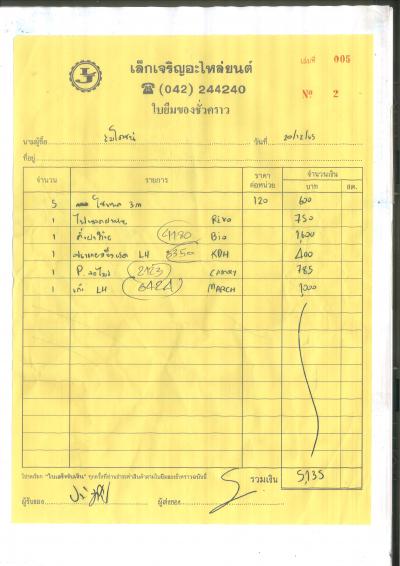 เล็กเจริญอะไหล่ยนต์
☎ (042) 244240
ใบยืมของชั่วคราว
เล่มที่ 005
Nº 2
นามผู้ซื้อ วันที่ 20/12/65
ที่อยู่
จำนวน รายการ ราคาต่อหน่วย จำนวนเงิน
บาท สต.
5 3m 120 600
1 Revo 750
1 4180 Bio 1600
1 LH 5350 KDH 400
1 P. 2423 CAMRY 785
1 LH 6424 MARCH 1000
โปรดเรียก "ใบเสร็จรับเงิน" ทุกครั้งที่ท่านชำระค่าสินค้าตามใบยืมของชั่วคราวฉบับนี้ รวมเงิน 5,135
ผู้รับของ ผู้ส่งของ